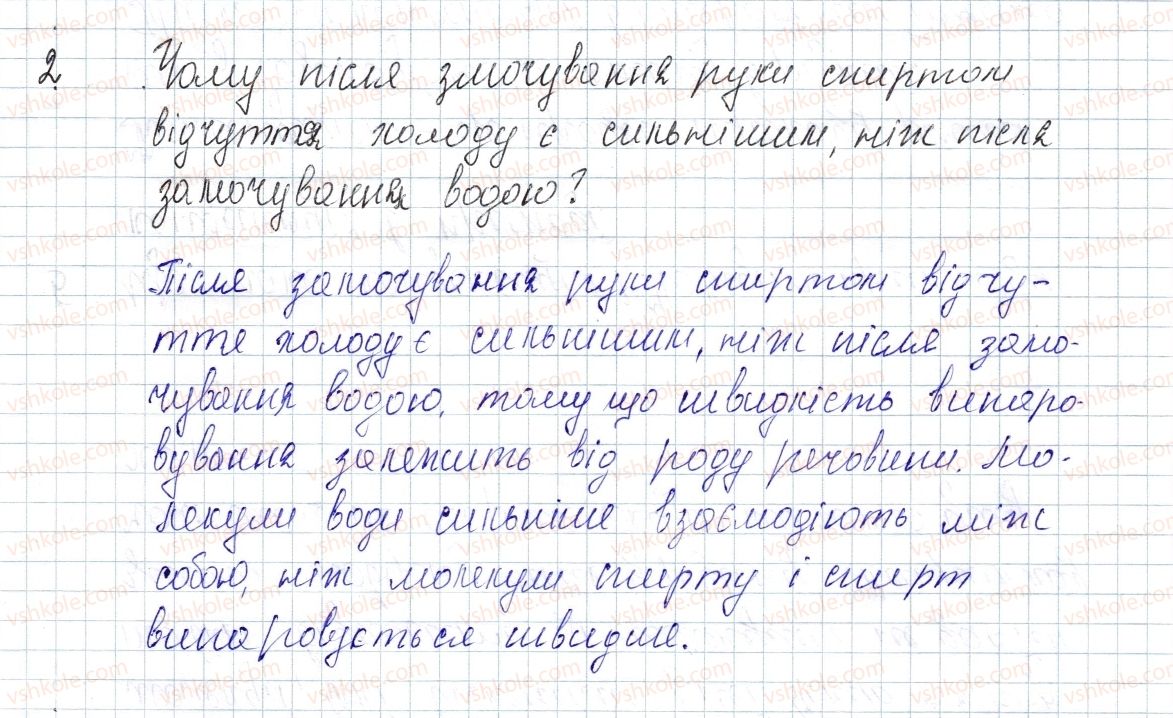 2. Чому після змочування руки спиртом
відчуття холоду є сильнішим, ніж після
замочування водою?
Після замочування руки спиртом відчу-
ття холоду є сильнішим, ніж після замо-
чування водою, тому що швидкість випаро-
вування залежить від роду речовини. Мо-
лекули води сильніше взаємодіють між
собою, ніж молекули спирту і спирт
випаровується швидше.